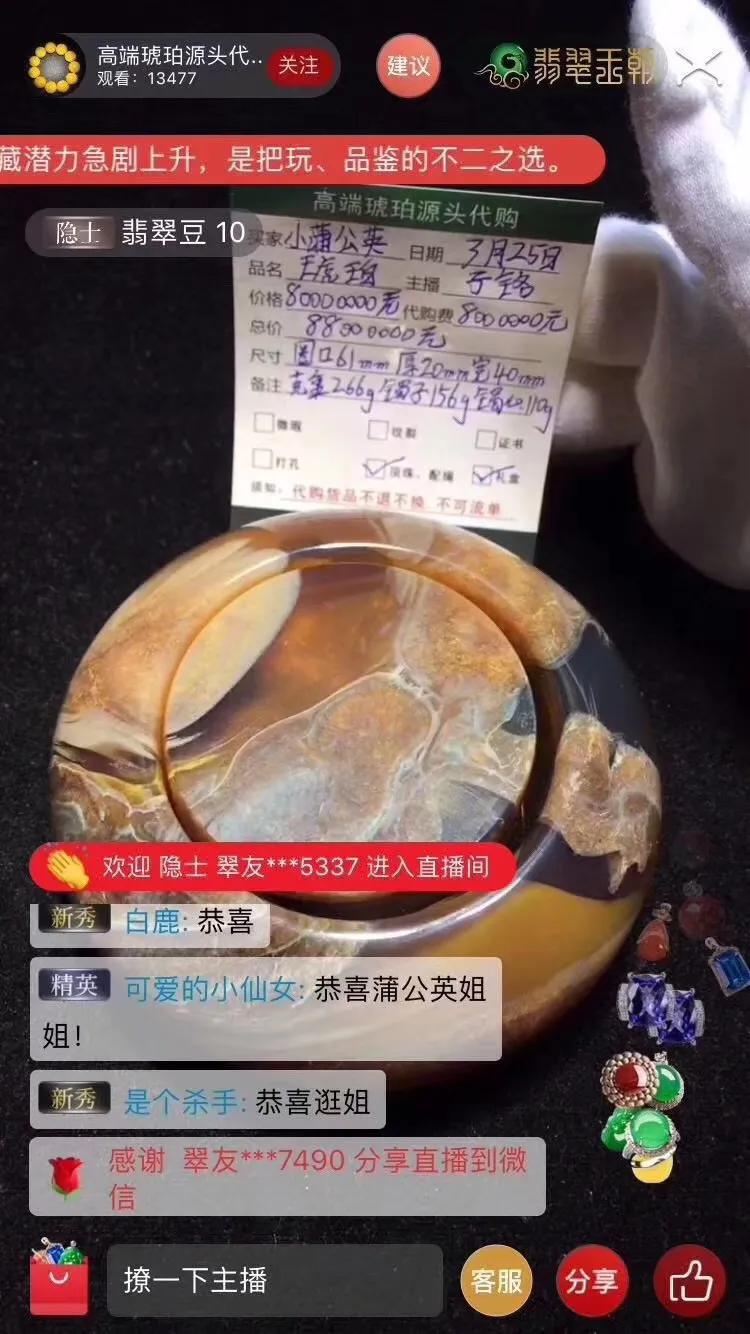 高端琥珀源头代..
观看：13477
关注
建议
翡翠王朝
藏潜力急剧上升，是把玩、品鉴的不二之选。
隐士 翡翠豆 10
高端琥珀源头代购
买家 小蒲公英 日期 3月25日
品名 琥珀 主播
价格 80000000元 代购费 8000000元
总价 88000000元
尺寸 圈口61mm 厚20mm 宽40mm
备注 克重266g 镯子156g 镯心110g
微瑕 纹裂 证书
打孔 配绳 礼盒
须知：代购货品不退不换 不可流单
欢迎 隐士 翠友***5337 进入直播间
新秀 白鹿: 恭喜
精英 可爱的小仙女: 恭喜蒲公英姐
姐！
新秀 是个杀手: 恭喜逛姐
感谢 翠友***7490 分享直播到微
信
撩一下主播
客服
分享